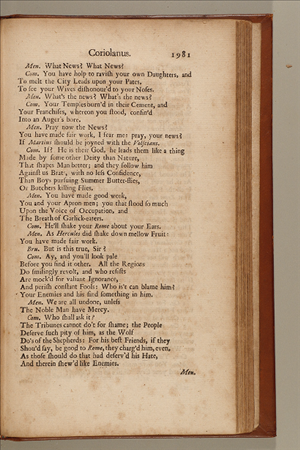 Coriolanus. 1981
Men. What News? What News?
Com. You have holp to ravish your own Daughters, and
To melt the City Leads upon your Pates,
To see your Wives dishonour'd to your Noses.
Men. What's the news? What's the news?
Com. Your Temples burn'd in their Cement, and
Your Franchises, whereon you stood, confin'd
Into an Auger's bore.
Men. Pray now the News?
You have made fair work, I fear me: pray, your news?
If Martius should be joyned with the Volscians.
Com. If? He is their God, he leads them like a thing
Made by some other Deity than Nature,
That shapes Man better; and they follow him
Against us Brats, with no less Confidence,
Than Boys pursuing Summer Butter-flies,
Or Butchers killing Flies.
Men. You have made good work,
You and your Apron men; you that stood so much
Upon the Voice of Occupation, and
The Breath of Garlick-eaters.
Com. He'll shake your Rome about your Ears.
Men. As Hercules did shake down mellow Fruit:
You have made fair work.
Bru. But is this true, Sir?
Com. Ay, and you'll look pale
Before you find it other. All the Regions
Do smilingly revolt, and who resists
Are mock'd for valiant Ignorance,
And perish constant Fools: Who is't can blame him?
Your Enemies and his find something in him.
Men. We are all undone, unless
The Noble Man have Mercy.
Com. Who shall ask it?
The Tribunes cannot do't for shame; the People
Deserve such pity of him, as the Wolf
Do's of the Shepherds: For his best Friends, if they
Shou'd say, be good to Rome, they charg'd him, even,
As those should do that had deserv'd his Hate,
And therein shew'd like Enemies.
Men.